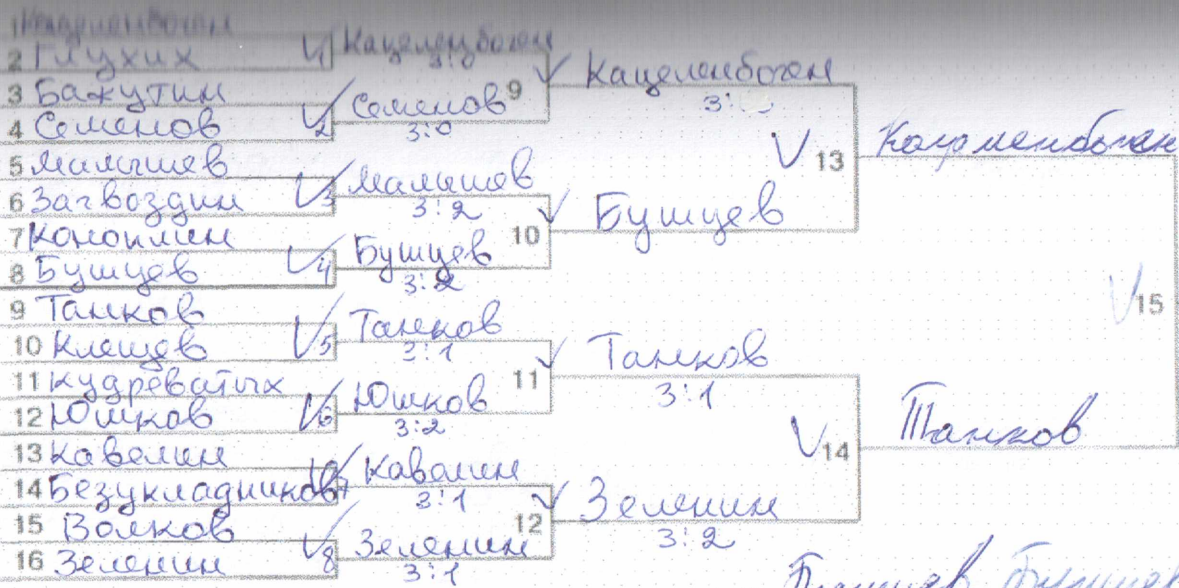 1 Кацеленбоген
2 Глухих
3 Бажутин
4 Семенов
5 Малышев
6 Загвоздин
7 Коноплин
8 Бушуев
9 Танков
10 Клещев
11 Кудреватых
12 Юшков
13 Кавелин
14 Безукладников
15 Волков
16 Зеленин
1 Кацеленбоген
3:0
2 Семенов
3:0
3 Малышев
3:2
4 Бушуев
3:2
5 Танков
3:1
6 Юшков
3:2
Кавелин
3:1
8 Зеленин
3:1
9 Кацеленбоген
3:
10 Бушуев
11 Танков
3:1
12 Зеленин
3:2
13 Кацеленбоген
14 Танков
15